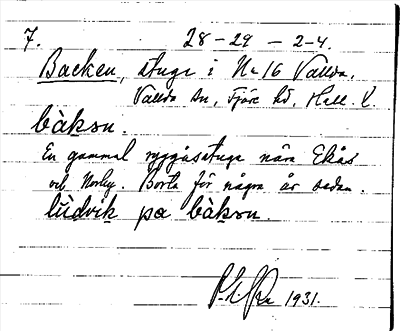 7. 28-29-2-4.
Backen, stuga i No 16 Vallda,
Vallda sn, Fjäre hd, Hall. l.
bàksn.
En gammal ryggåsstuga nära Ekås
vid Norby. Borta för några år sedan.
lùdvik pa bàksn.
1931.